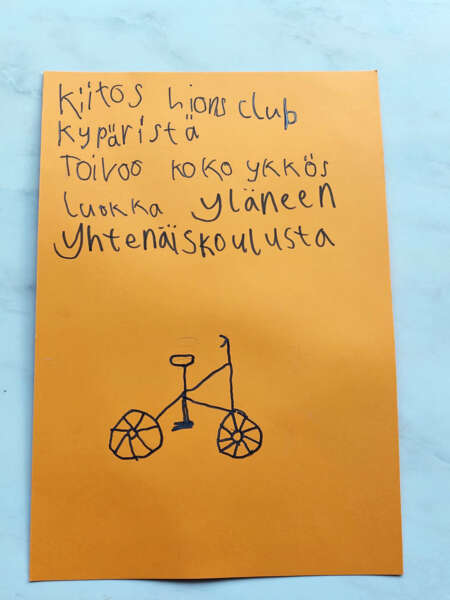 Kiitos Lions club
kypäristä
Toivoo koko ykkös
luokka Yläneen
Yhtenäiskoulusta